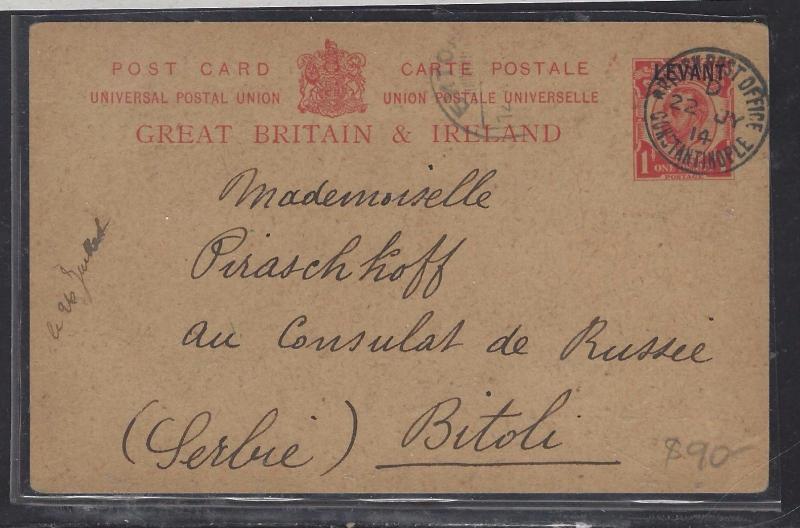 POST CARD CARTE POSTALE
UNIVERSAL POSTAL UNION UNION POSTALE UNIVERSELLE
GREAT BRITAIN & IRELAND
LEVANT
BRITISH POST OFFICE
D
22 JY
14
CONSTANTINOPLE
1 ONE
POSTAGE
Mademoiselle
Piraschkoff
au Consulat de Russie
(Serbie) Bitoli
le 26 Juillet
$90-